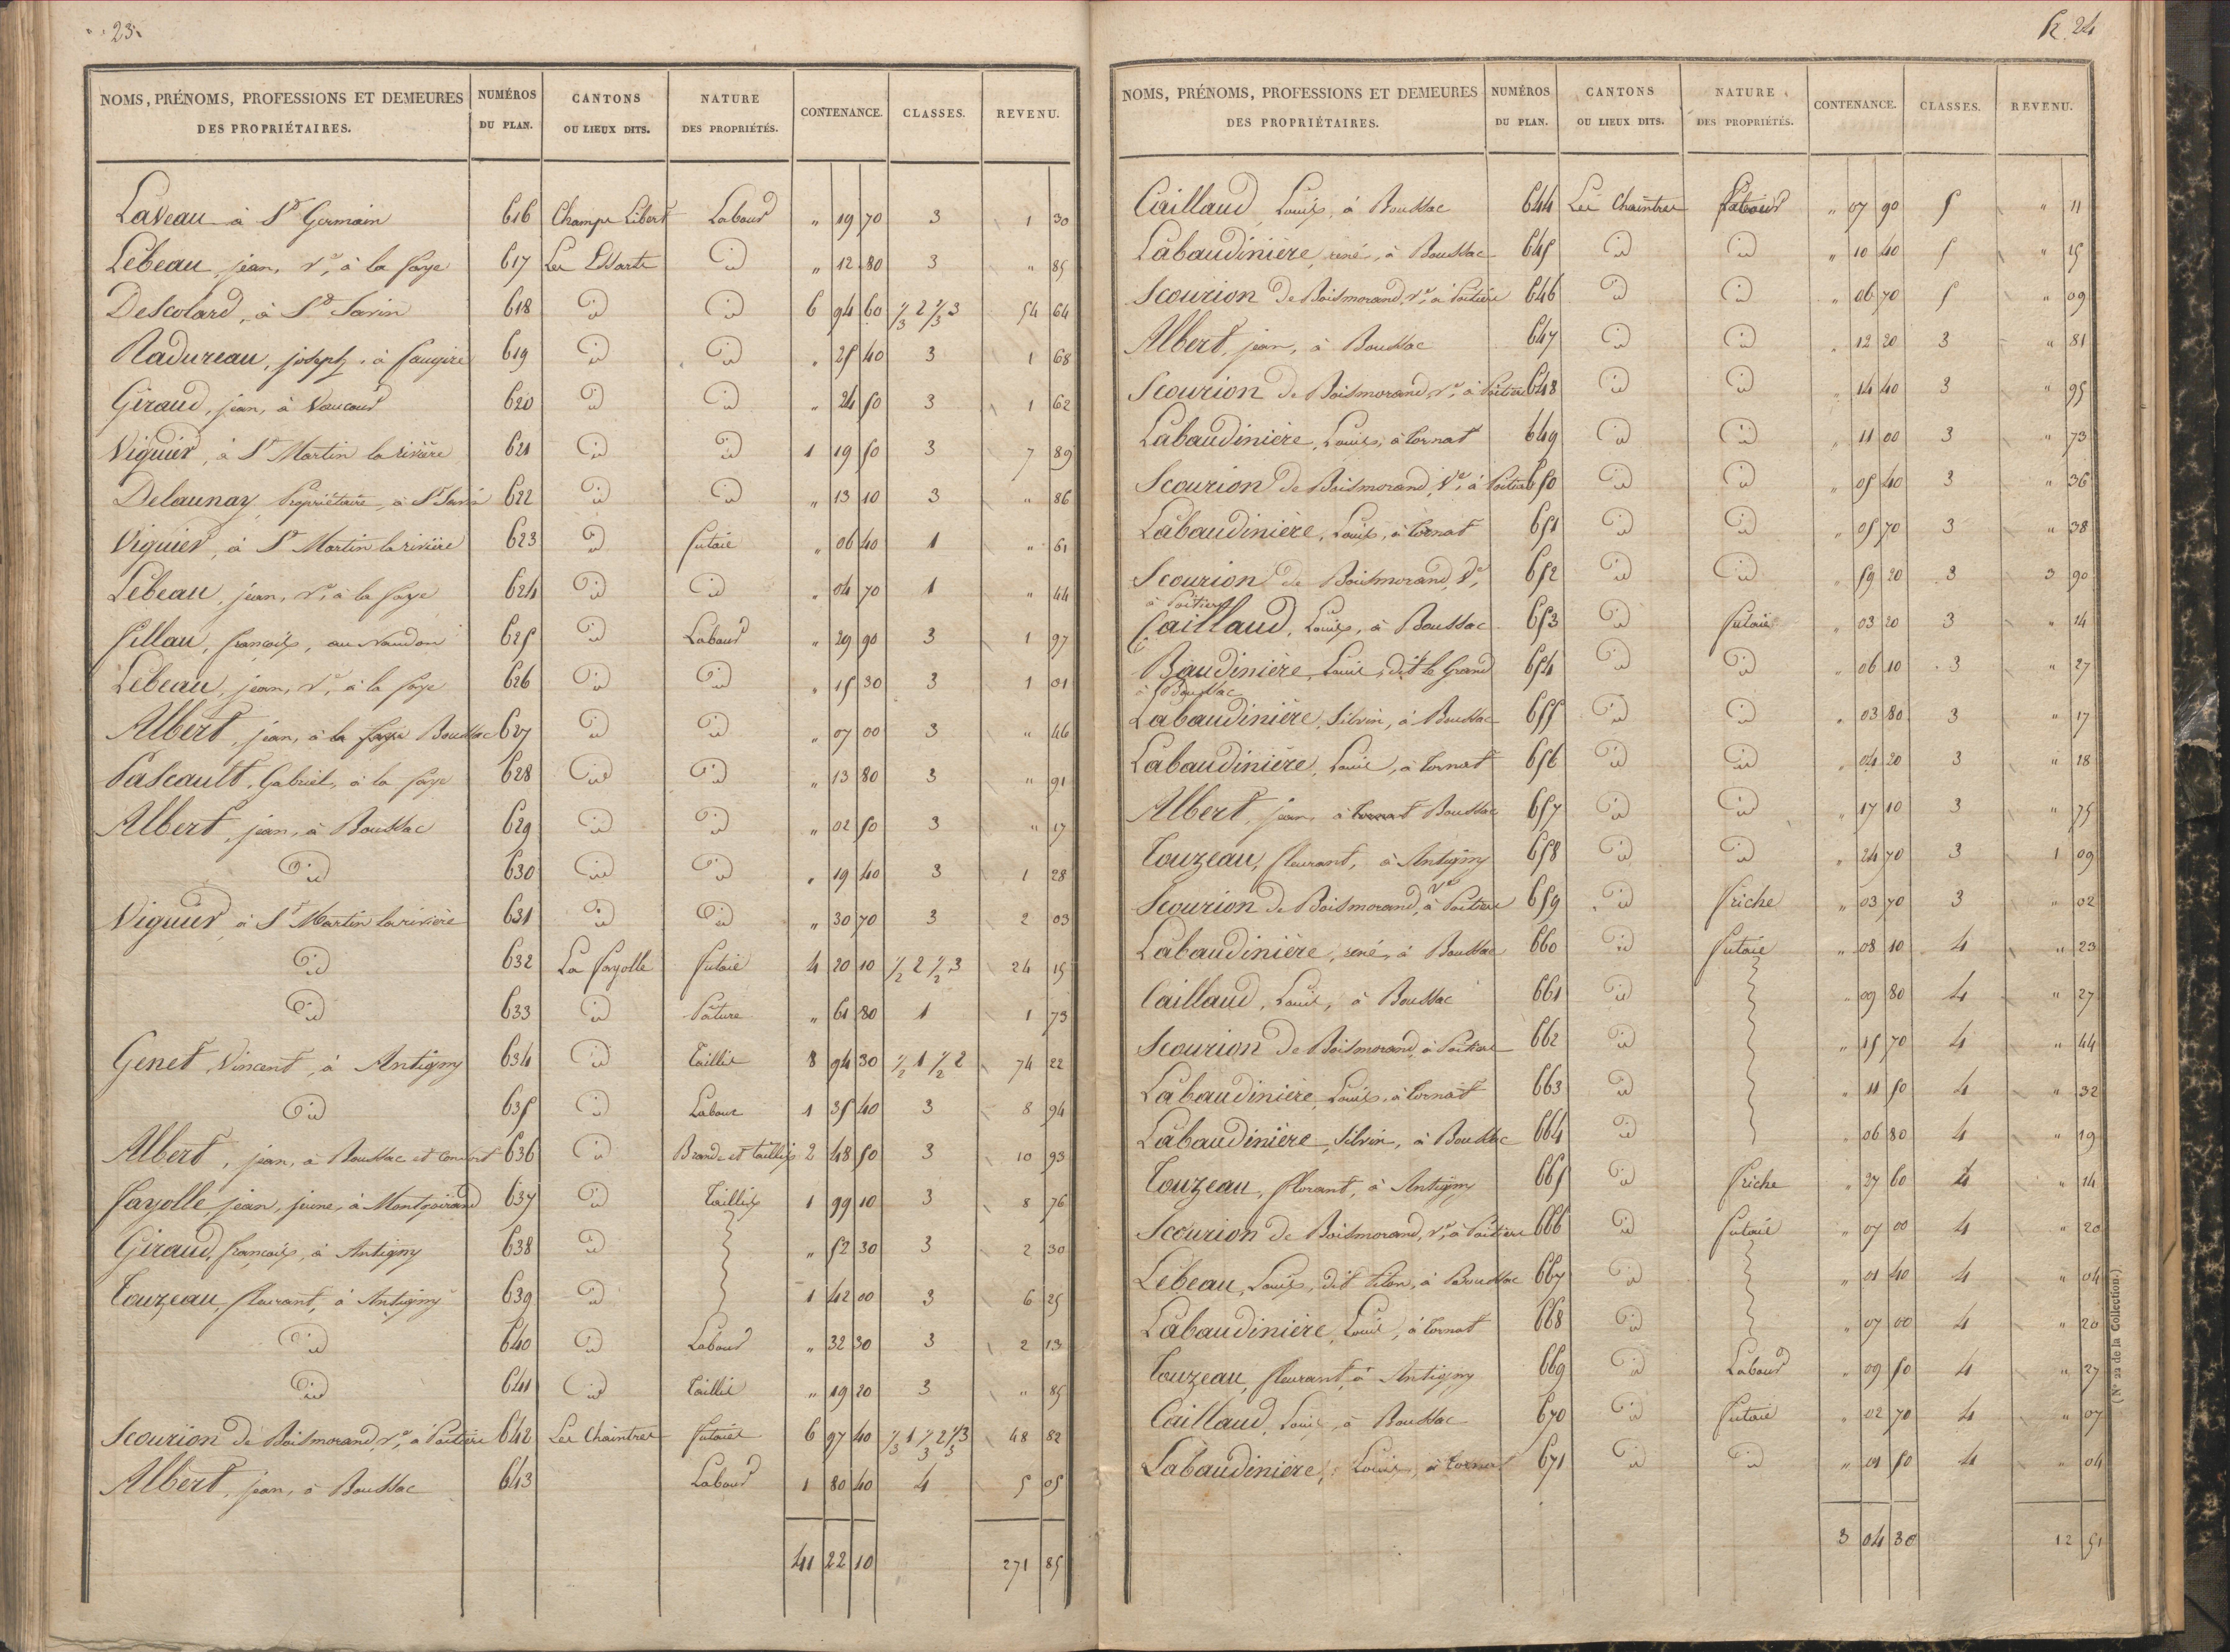 23.
NOMS, PRÉNOMS, PROFESSIONS ET DEMEURES DES PROPRIÉTAIRES. NUMÉROS DU PLAN. CANTONS OU LIEUX DITS. NATURE DES PROPRIÉTÉS. CONTENANCE. CLASSES. REVENU.
Laveau à St Germain 616 Champs Libert Labour " 19 70 3 1 30
Lebeau, jean, Ve, à la faye 617 Les Essarts id " 12 80 3 " 85
Descolard, à St Savin 618 id id 6 94 60 1/3 2 2/3 3 54 64
Radureau, joseph, à faugère 619 id id " 25 40 3 1 68
Giraud, jean, à Vaucour 620 id id " 24 50 3 1 62
Viguier, à St Martin la rivière 621 id id 1 19 50 3 7 89
Delaunay, Propriétaire, à St Savin 622 id id " 13 10 3 " 86
Viguier, à St Martin la rivière 623 id futaie " 06 40 1 " 61
Lebeau, jean, Ve, à la faye 624 id id " 04 70 1 " 44
fillau, françois, au Naudon 625 id Labour " 29 90 3 1 97
Lebeau, jean, Ve, à la faye 626 id id " 15 30 3 1 01
Albert, jean, à la faye Boussac 627 id id " 07 00 3 " 46
Pascault, Gabriel, à la faye 628 id id " 13 80 3 " 91
Albert, jean, à Boussac 629 id id " 02 50 3 " 17
id 630 id id " 19 40 3 1 28
Viguier à St Martin la rivière 631 id id " 30 70 3 2 03
id 632 La fayolle futaie 4 20 10 1/2 2 1/2 3 24 15
id 633 id Pâture " 61 80 1 1 73
Genet, Vincent, à Antigny 634 id Taillis 8 94 30 1/2 1 1/2 2 74 22
id 635 id Labour 1 35 40 3 8 94
Albert, jean, à Boussac et consort 636 id Brande et taillis 2 48 50 3 10 93
fayolle, jean, jeune, à Montpoirand 637 id Taillis 1 99 10 3 8 76
Giraud, françois, à Antigny 638 id " 52 30 3 2 30
Touzeau, fleurant, à Antigny 639 id 1 42 00 3 6 25
id 640 id Labour " 32 30 3 2 13
id 641 id Taillis " 19 20 3 " 85
Scourion de Boismorand, Ve, à Poitiers 642 Les Chaintres futaies 6 97 40 1/3 1 1/3 2 1/3 3 48 82
Albert, jean, à Boussac 643 Labour 1 80 40 4 5 05
41 22 10 271 85
24
NOMS, PRÉNOMS, PROFESSIONS ET DEMEURES DES PROPRIÉTAIRES. NUMÉROS DU PLAN. CANTONS OU LIEUX DITS. NATURE DES PROPRIÉTÉS. CONTENANCE. CLASSES. REVENU.
Caillaud, Louis, à Boussac 644 Les Chaintres " 07 90 5 " 11
Labaudinière, rené, à Boussac 645 id id " 10 40 5 " 15
Scourion de Boismorand, Ve, à Poitiers 646 id id " 06 70 5 " 09
Albert, jean, à Boussac 647 id id " 12 20 3 " 81
Scourion de Boismorand, Ve, à Poitiers 648 id id " 14 40 3 " 95
Labaudinière, Louis, à Cornat 649 id id " 11 00 3 " 73
Scourion de Boismorand, Ve, à Poitiers 650 id id " 05 40 3 " 36
Labaudinière, Louis, à Cornat 651 id id " 05 70 3 " 38
Scourion de Boismorand, Ve, 652 id id " 59 20 3 3 90
à Poitiers
Caillaud, Louis, à Boussac 653 id futaie " 03 20 3 " 14
Baudinière, Louis, dit le Grand 654 id id " 06 10 3 " 27
à Boussac
Labaudinière, Silvin, à Boussac 655 id id " 03 80 3 " 17
Labaudinière, Louis, à Cornat 656 id id " 04 20 3 " 18
Albert, jean, à Cornat Boussac 657 id id " 17 10 3 " 75
Touzeau, fleurant, à Antigny 658 id id " 24 70 3 1 09
Scourion de Boismorand, Ve à Poitiers 659 id friche " 03 70 3 " 02
Labaudinière, rené, à Boussac 660 id futaie " 08 10 4 " 23
Caillaud, Louis, à Boussac 661 id " 09 80 4 " 27
Scourion de Boismorand, à Poitiers 662 id " 15 70 4 " 44
Labaudinière, Louis, à Cornat 663 id " 11 50 4 " 32
Labaudinière, Silvin, à Boussac 664 id " 06 80 4 " 19
Touzeau, florant, à Antigny 665 id friche " 27 60 4 " 14
Scourion de Boismorand, Ve, à Poitiers 666 id futaie " 07 00 4 " 20
Lebeau, Louis, dit Pilon, à Boussac 667 id " 01 40 4 " 04
Labaudinière, Louis, à Cornat 668 id " 07 00 4 " 20
Touzeau, fleurant, à Antigny 669 id Labour " 09 50 4 " 27
Caillaud, Louis, à Boussac 670 id futaie " 02 70 4 " 07
Labaudinière, Louis, à Cornat 671 id id " 01 50 4 " 04
3 04 30 12 51
(N° 22 de la Collection.)